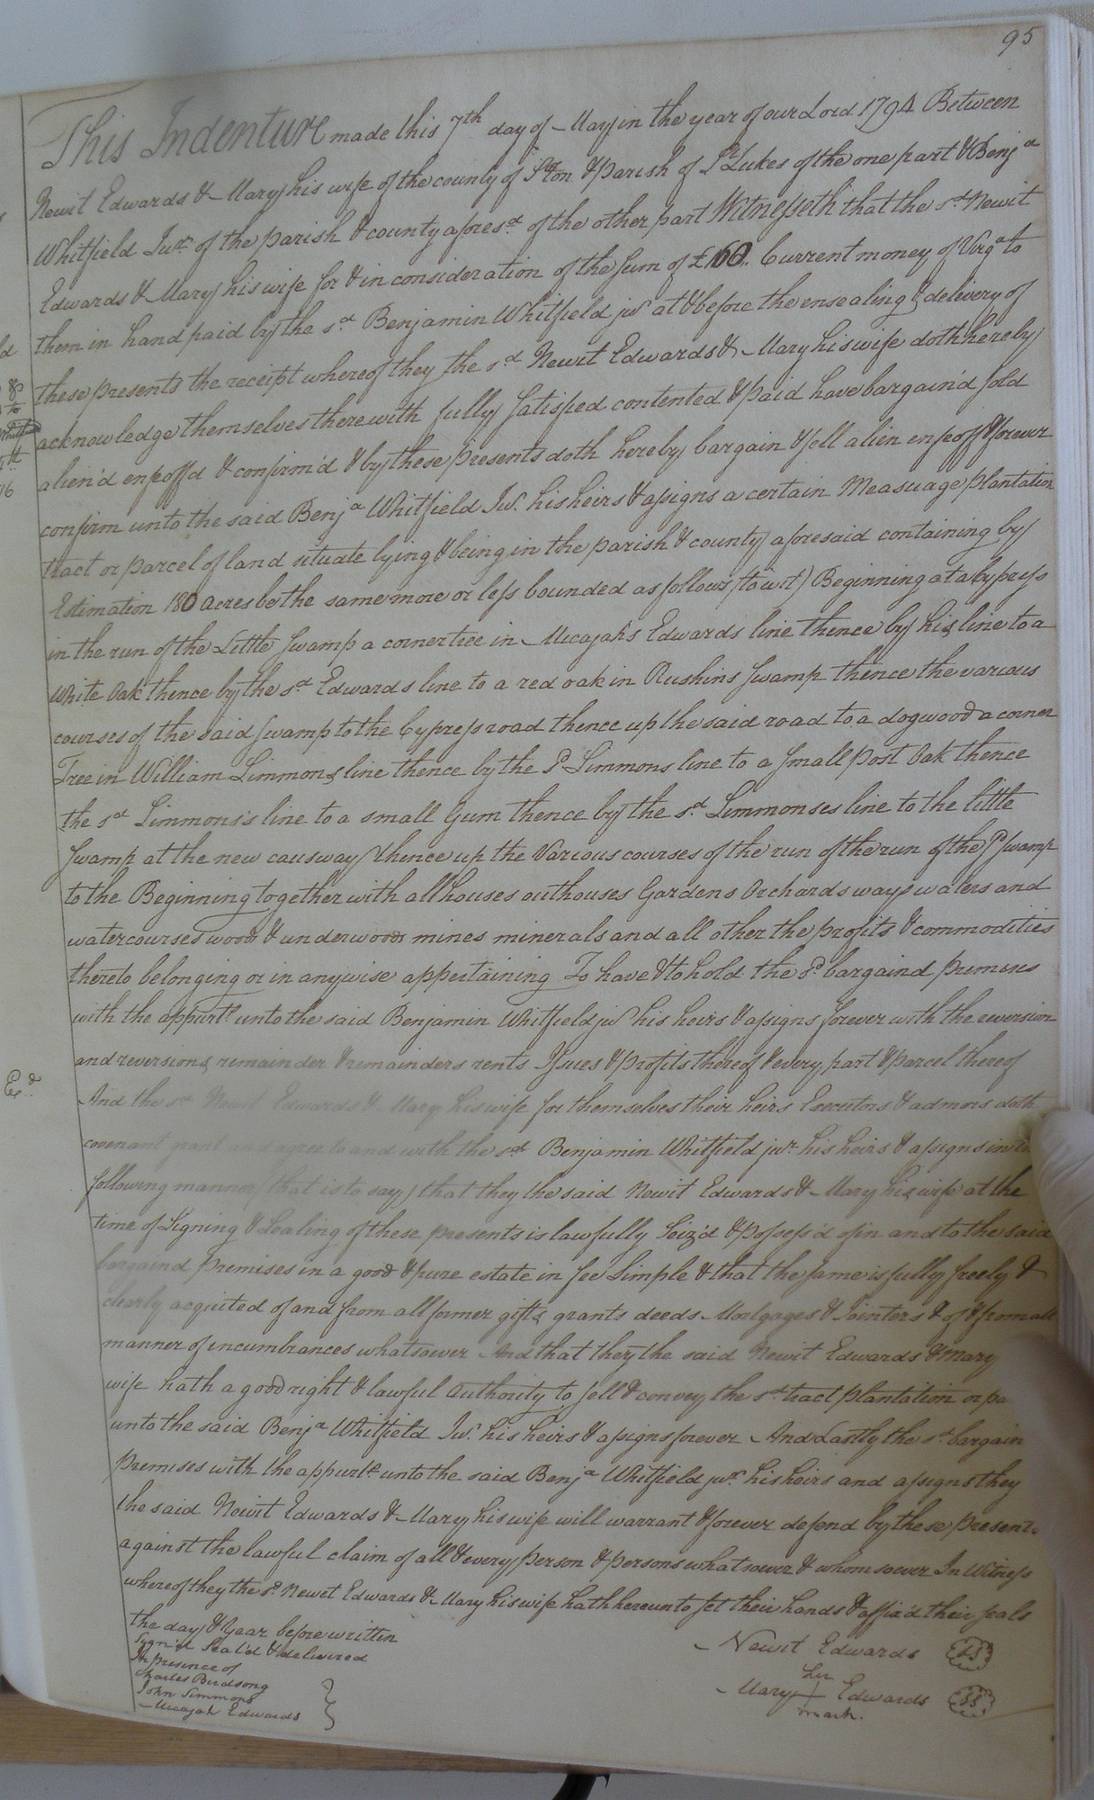 95
This Indenture made this 7th day of May in the year of our Lord 1794 Between
Newit Edwards & Mary his wife of the county of S.ton & Parish of St Lukes of the one part & Benja
Whitfield Junr. of the parish & county afores.d of the other part Witnesseth that the sd Newit
Edwards & Mary his wife for & in consideration of the sum of £160. Current money of Virga to
them in hand paid by the sd Benjamin Whitfield jur at & before the ensealing & delivery of
these presents the receipt whereof they the sd Newit Edwards & Mary his wife doth hereby
acknowledge themselves therewith fully satisfied contented & paid have bargain'd sold
alien'd enfeoff'd & confirm'd & by these presents doth hereby bargain & sell alien enfeoff & forever
confirm unto the said Benja Whitfield Jur. his heirs & assigns a certain Measuage plantation
tract or parcel of land situate lying & being in the parish & county aforesaid containing by
Estimation 180 acres be the same more or less bounded as follows (to wit) Beginning at a cypress
in the run of the Little Swamp a corner tree in Micajah's Edwards line thence by his line to a
White Oak thence by the sd Edwards line to a red oak in Rushins Swamp thence the various
courses of the said swamp to the Cypress road thence up the said road to a dogwood a corner
Tree in William Simmons line thence by the sd Simmons line to a small post Oak thence
the sd Simmons's line to a small Gum thence by the sd Simmonses line to the little
swamp at the new causway thence up the Various courses of the run of the run of the sd swamp
to the Beginning together with all houses outhouses Gardens Orchards ways waters and
watercourses woods & underwoods mines minerals and all other the profits & commodities
thereto belonging or in anywise appertaining To have & to hold the sd bargaind premises
with the appurts unto the said Benjamin Whitfield jur his heirs & assigns forever with the reversion
and reversions remainder & remainders rents Issues & Profits thereof & every part & parcel thereof
And the sd Newit Edwards & Mary his wife for themselves their heirs Executors & admors doth
Ex.d
covenant grant and agree to and with the sd Benjamin Whitfield jur. his heirs & assigns in
following manner (that is to say) that they the said Newit Edwards & Mary his wife at the
time of Signing & Sealing of these presents is lawfully Seiz'd & possess'd of in and to the said
bargaind premises in a good & pure estate in fee Simple & that the same is fully freely &
clearly acquited of and from all former gifts grants deeds Mortgages & Jointers & of & from all
manner of incumbrances whatsoever And that they the said Newit Edwards & Mary
wife hath a good right & lawful authority to sell & convey the sd tract plantation or
unto the said Benja Whitfield Jur. his heirs & assigns forever And Lastly the sd bargain
Premises with the appurts unto the said Benja Whitfield jur. his heirs and assigns they
the said Newit Edwards & Mary his wife will warrant & forever defend by these presents
against the lawful claim of all & every person & persons whatsoever & whomsoever In Witness
whereof they the sd Newet Edwards & Mary his wife hath hereunto set their hands & affix'd their seals
the day & Year before written
Sign'd Seal'd & delivered
In presence of
Charles Birdsong
John Simmons
Micajah Edwards
Newit Edwards LS
her
Mary + Edwards SS
mark.